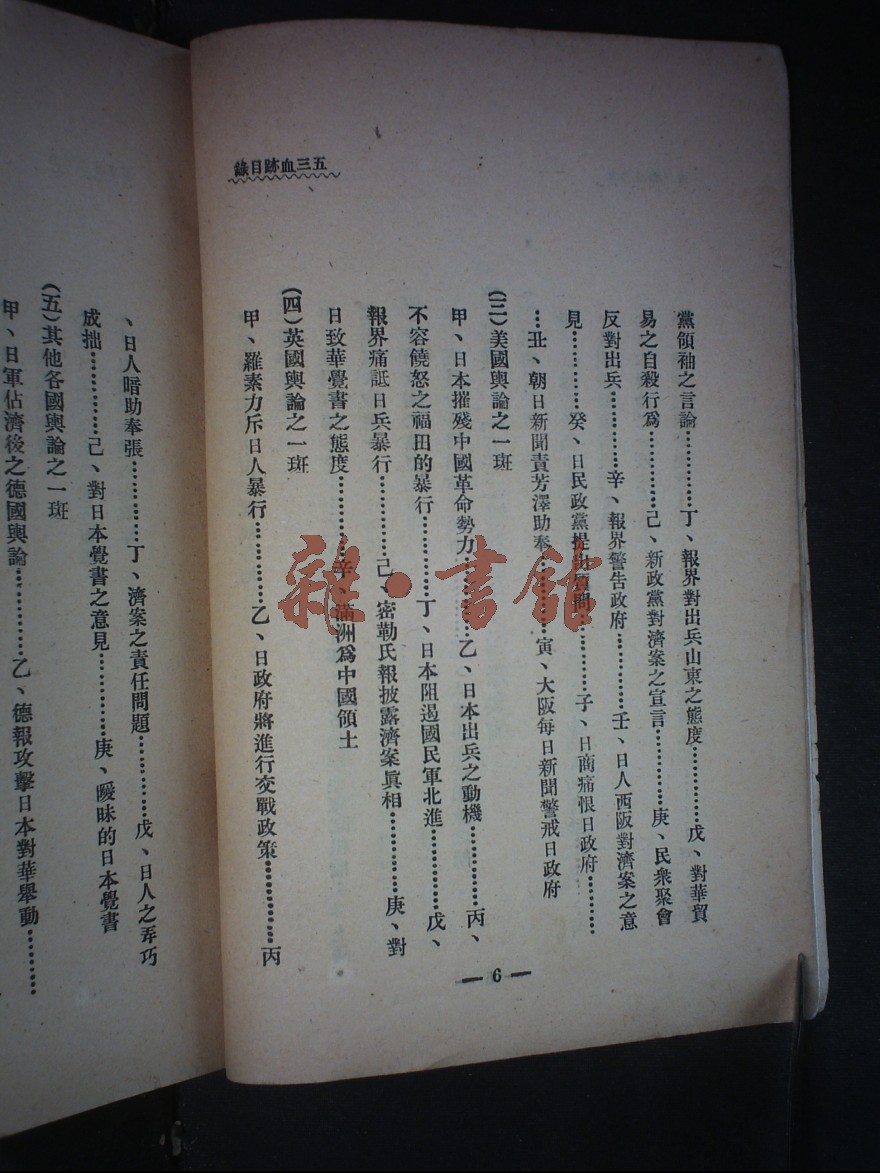 五三血跡目錄
黨領袖之言論…………丁、報界對出兵山東之態度…………戊、對華貿
易之自殺行爲…………己、新政黨對濟案之宣言…………庚、民衆聚會
反對出兵…………辛、報界警告政府…………壬、日人西阪對濟案之意
見…………癸、日民政黨提出質問…………子、日商痛恨日政府……
…丑、朝日新聞責芳澤助奉…………寅、大阪每日新聞警戒日政府
(三)美國輿論之一斑
甲、日本摧殘中國革命勢力…………乙、日本出兵之動機…………丙、
不容饒恕之福田的暴行…………丁、日本阻遏國民軍北進…………戊、
報界痛詆日兵暴行…………己、密勒氏報披露濟案眞相…………庚、對
日致華覺書之態度…………辛、滿洲爲中國領土
(四)英國輿論之一斑
甲、羅素力斥日人暴行…………乙、日政府將進行交戰政策…………丙
— 6 —
、日人暗助奉張…………丁、濟案之責任問題…………戊、日人之弄巧
成拙…………己、對日本覺書之意見…………庚、曖昧的日本覺書
(五)其他各國輿論之一斑
甲、日軍佔濟後之德國輿論…………乙、德報攻擊日本對華舉動…………
雜·書館